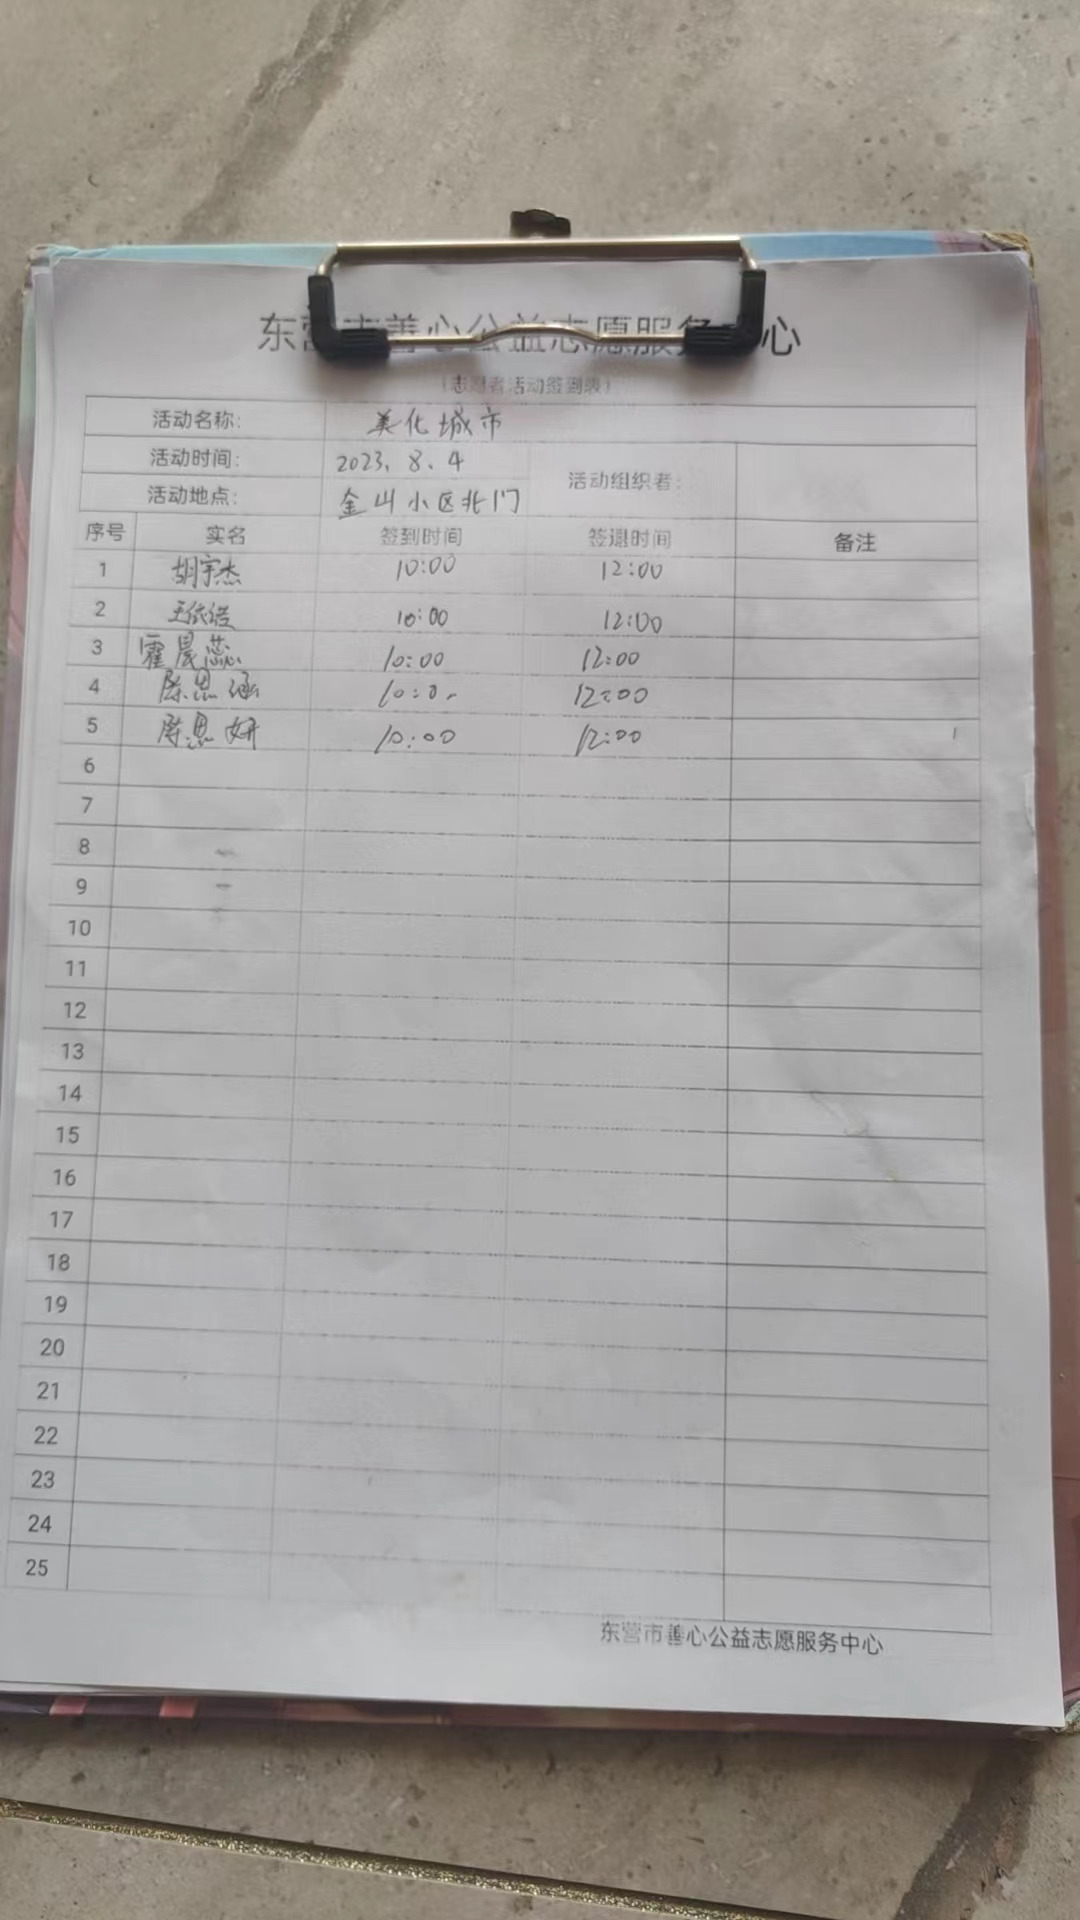 东营市善心公益志愿服务中心
(志愿者活动签到表)
活动名称: 美化城市
活动时间: 2023.8.4 活动组织者:
活动地点: 金山小区北门
序号 实名 签到时间 签退时间 备注
1 胡宇杰 10:00 12:00
2 王依诺 10:00 12:00
3 霍晨蕊 10:00 12:00
4 陈思涵 10:0. 12:00
5 陈思妍 10:00 12:00
6
7
8
9
10
11
12
13
14
15
16
17
18
19
20
21
22
23
24
25
东营市善心公益志愿服务中心